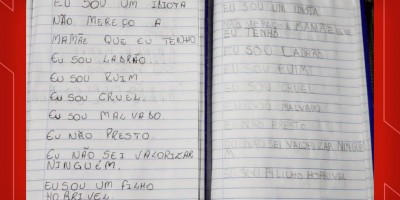 EU SOU UM IDIOTA
NÃO MEREÇO A
MAMÃE QUE EU TENHO
EU SOU LADRÃO.
EU SOU RUIM
EU SOU CRUEL.
EU SOU MALVADO
EU NÃO PRESTO.
EU NÃO SEI VALORIZAR
NINGUÉM.
EU SOU UM FILHO
HORRIVEL
EU SOU UM IDIOTA
NÃO MEREÇO A MAMÃE QUE
EU TENHO
EU SOU LADRÃO
EU SOU RUIM
EU SOU CRUEL
EU SOU MALVADO
EU NÃO PRESTO
EU NÃO SEI VALORIZAR NINGUÉ
M
EU SOU FILHO HORRIVEL